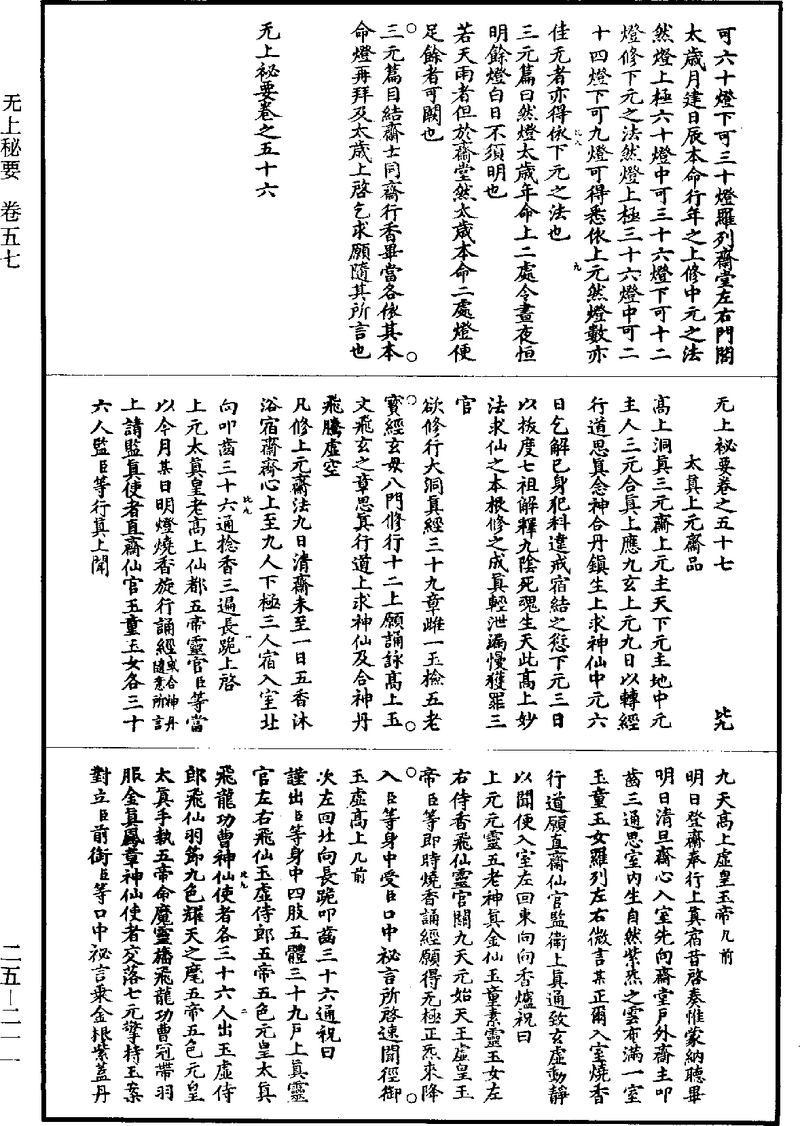 无上秘要　卷五七
二五―二一一
可六十燈下可三十燈羅列齋堂左右門閤
太歲月建日辰本命行年之上修中元之法
然燈上極六十燈中可三十六燈下可十二
燈修下元之法然燈上極三十六燈中可二
十四燈下可九燈可得悉依上元然燈數亦
佳无者亦得依下元之法也
三元篇曰然燈太歲年命上二處令晝夜恒
明餘燈白日不須明也
若天雨者但於齋堂然太歲本命二處燈便
足餘者可闕也
三元篇目結齋士同齋行香畢當各依其本
命燈再拜及太歲上啓乞求願隨其所言也
无上祕要卷之五十六
无上祕要卷之五十七　比九
太真上元齋品
高上洞真三元齋上元主天下元主地中元
主人三元合真上應九玄上元九日以轉經
行道思真念神合丹鎮生上求神仙中元六
日乞解已身犯科違戒宿結之愆下元三日
以拔度七祖解釋九陰死魂生天此高上妙
法求仙之本根修之成真輕泄漏慢獲罪三
官
欲修行大洞真經三十九章雌一玉檢五老
寶經玄母八門修行十二上願誦詠高上玉
文飛玄之章思真行道上求神仙及合神丹
飛騰虛空
凡修上元齋法九日清齋未至一日五香沐
浴宿齋齋心上至九人下極三人宿入室北
向叩齒三十六通捻香三遍長跪上啓
上元太真皇老高上仙都五帝靈官臣等當
以今月某日明燈燒香旋行誦經或合神丹隨意所言
上請監真使者直齋仙官玉童玉女各三十
六人監臣等行真上聞
九天高上虛皇玉帝几前
明日登齋奉行上真宿昔啓奏惟蒙納聽畢
明日清旦齋心入室先向齋堂戶外齋主叩
齒三通思室内生自然紫炁之雲布滿一室
玉童玉女羅列左右微言某正爾入室燒香
行道願直齋仙官監衛上真通致玄虛動靜
以聞便入室左回東向向香爐祝曰
上元元靈五老神真金仙玉童素靈玉女左
右侍香飛仙靈官關九天元始天王虛皇玉
帝臣等即時燒香誦經願得无極正炁來降
入臣等身中受臣口中祕言所啓速聞徑御
玉虛高上几前
次左回北向長跪叩齒三十六通祝曰
謹出臣等身中四肢五體三十九戶上真靈
官左右飛仙玉虛侍郎五帝五色元皇太真
飛龍功曹神仙使者各三十六人出玉虛侍
郎飛仙羽節九色耀天之麾五帝五色元皇
太真手執五帝命魔靈幡飛龍功曹冠帶羽
服金真鳳章神仙使者交落七元擎持玉案
對立臣前銜臣等口中祕言乘金根紫蓋丹